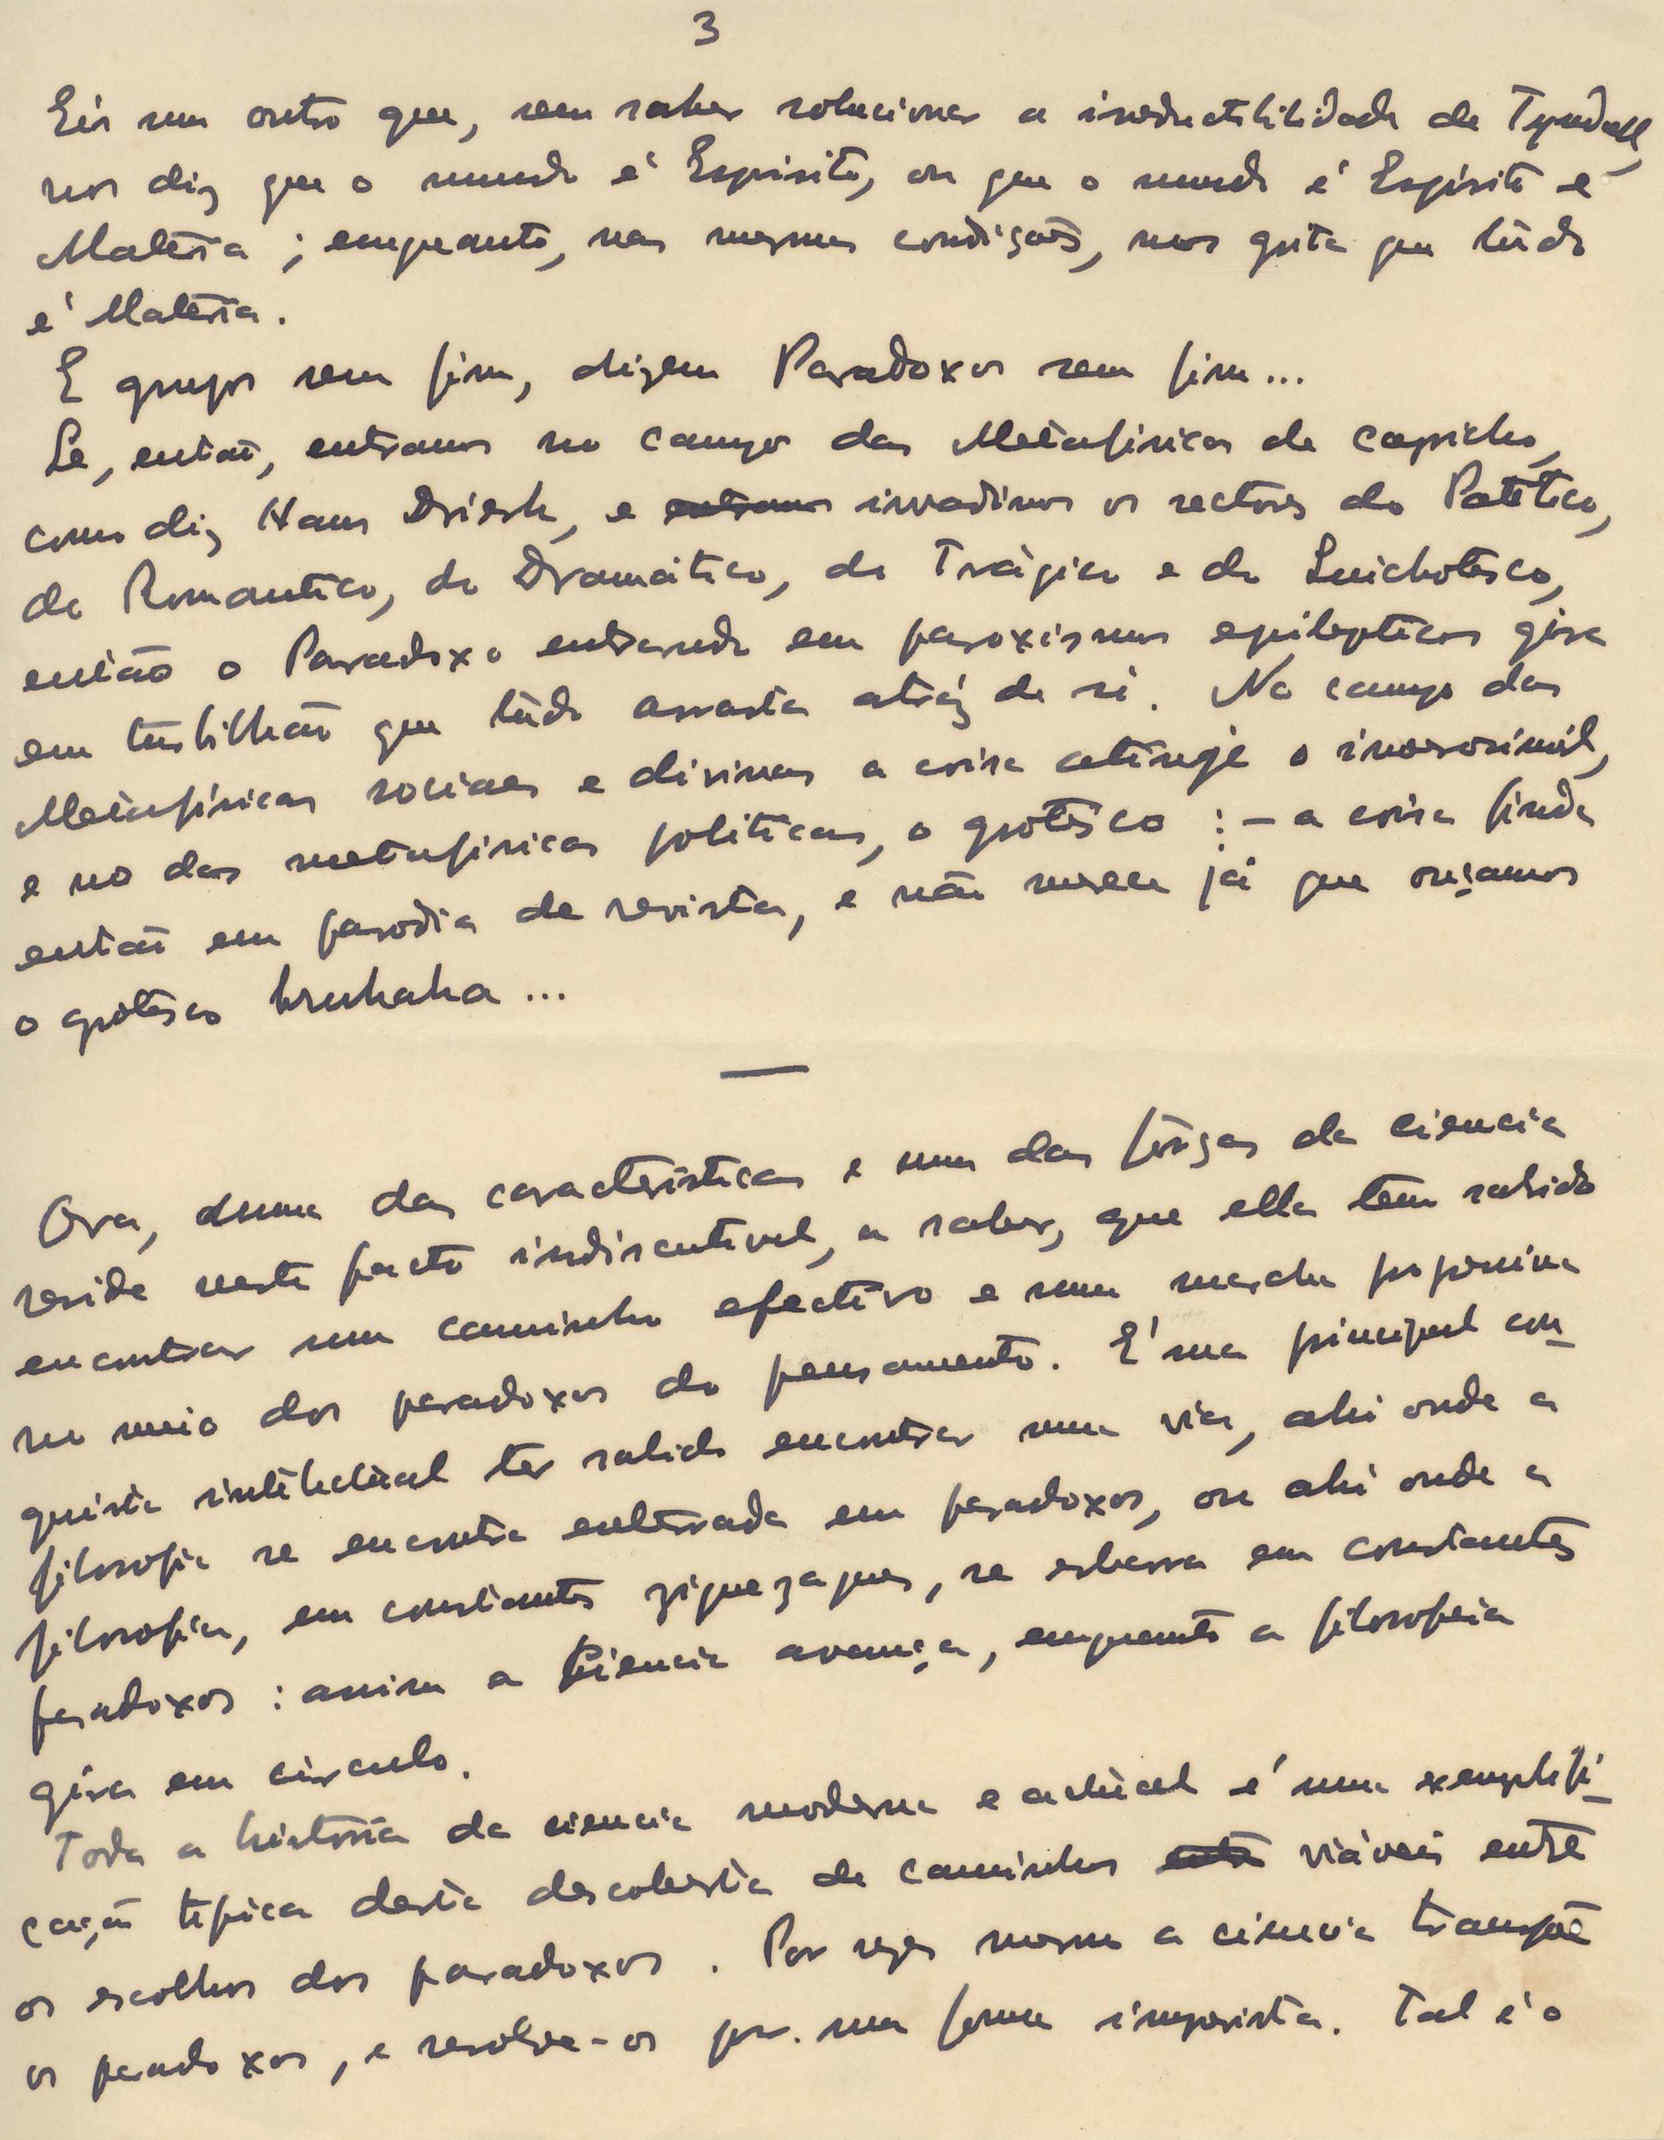 3
Eis um outro que, sem saber solucionar a ireductibilidade de Tyndall,
nos diz que o mundo é Espirito, ou que o mundo é Espirito e
Materia; emquanto, nas mesmas condições, nos grita que túdo
é Materia.
E grupos sem fim, dizem Paradoxos sem fim...
Se, então, entramos no campo das Metafisicas de capricho,
como diz Hans Driesh, e entramos invadimos os sectores do Patético,
do Romantico, do Dramático, do Trágico e do Quichotesco,
então o Paradoxo entrando em paroxismos epilepticos gira
em turbilhão que túdo arrasta atráz de si. No campo das
Metafisicas sociaes e divinas a coisa atinge o inverosimil,
e no das metafisicas politicas, o grotesco :- a coisa finda
então em parodia de revista, e não merece já que ouçamos
o grotesco bruhaha...
Ora, duma das caracteristicas e uma das fôrças da ciencia
reside neste facto indiscutivel, a saber, que ella tem sabido
encontrar um caminho efectivo e uma marcha progressiva
no meio dos paradoxos do pensamento. E' sua principal con-
quista intelectual ter sabido encontrar uma via, ahi onde a
filosofia se encontra enterrada em paradoxos, ou ahi onde a
filosofia, em constantes ziguezagues, se esbarra em constantes
paradoxos: assim a Ciencia avança, emquanto a filosofia
gira em circulo.
Toda a historia da ciencia moderna e actual é uma exemplifi-
cação tipica desta descoberta de caminhos entre viáveis entre
os escolhos dos paradoxos. Por vezes mesmo a ciencia transpõe
os paradoxos, e resolve-os por uma forma imprevista. Tal é o